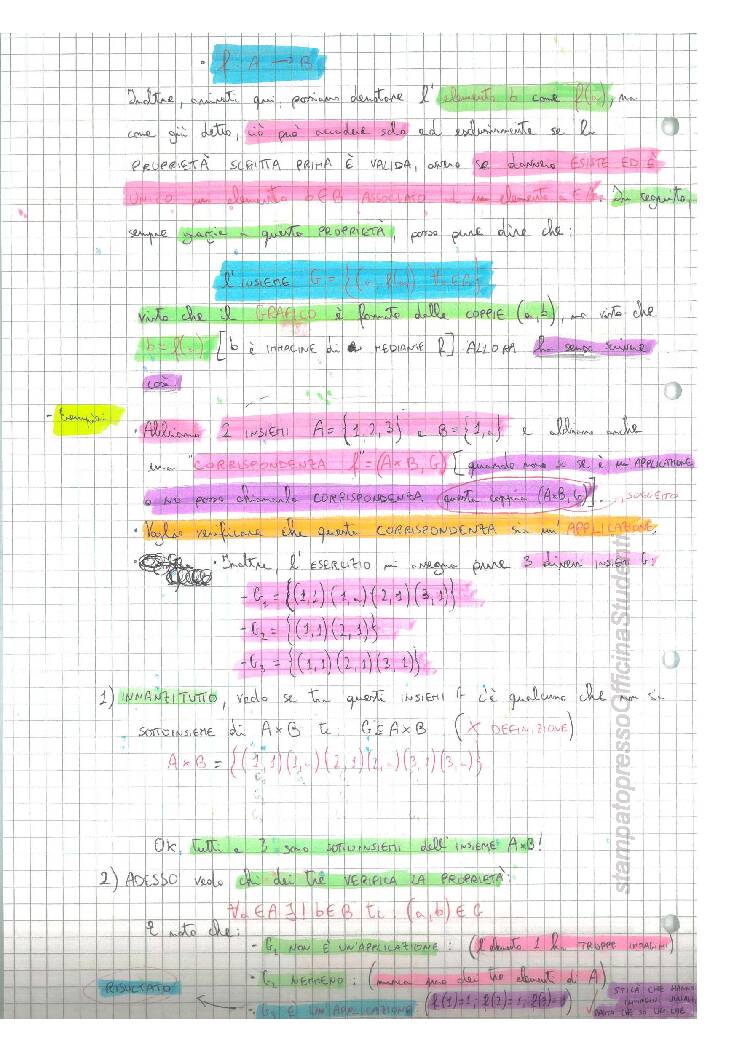 · f: A → B
Inoltre, arrivati qui, possiamo denotare l'elemento b come f(a), ma
come già detto, ciò può accadere solo ed esclusivamente se la
PROPRIETÀ SCRITTA PRIMA È VALIDA, ovvero se davvero ESISTE ED È
UNICO un elemento b∈B ASSOCIATO ad un elemento a∈A. In seguito,
sempre grazie a questa PROPRIETÀ, posso pure dire che:
l'INSIEME G = {(a, f(a)) ∀a∈A}
visto che il GRAFICO è formato dalle COPPIE (a,b), ma visto che
b = f(a) [b è IMMAGINE di a MEDIANTE f] ALLORA ha senso scrivere
così.
- Esempio:
· Abbiamo 2 INSIEMI A = {1,2,3} e B = {1,a} e abbiamo anche
una "CORRISPONDENZA f" = (A×B, G) [quando non so se è un'APPLICAZIONE
o NO posso chiamarla CORRISPONDENZA questa coppia (A×B, G)]
· Voglio verificare che questa CORRISPONDENZA sia un'APPLICAZIONE.
· Inoltre, l'ESERCIZIO mi assegna pure 3 diversi INSIEMI G:
- G₁ = {(1,1)(1,a)(2,1)(3,1)}
- G₂ = {(1,1)(2,1)}
- G₃ = {(1,1)(2,1)(3,1)}
1) INNANZITUTTO, vedo se tra questi INSIEMI G c'è qualcuno che non sia
SOTTOINSIEME di A×B t.c. G⊆A×B (X DEFINIZIONE)
A×B = {(1,1)(1,a)(2,1)(2,a)(3,1)(3,a)}
Ok, tutti e 3 sono SOTTOINSIEMI dell'INSIEME A×B!
2) ADESSO vedo chi dei tre VERIFICA LA PROPRIETÀ:
∀a∈A ∃! b∈B t.c. (a,b)∈G
È noto che:
- G₁ NON È UN'APPLICAZIONE: (l'elemento 1 ha TROPPE IMMAGINI)
- G₂ NEMMENO: (manca uno dei tre elementi di A)
RISULTATO ← - G₃ È UN'APPLICAZIONE: (f(1)=1; f(2)=1; f(3)=1)
stampatopressoOfficinaStudenti